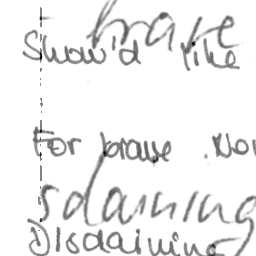 brave
Show'd like
For brave
sdaining
Disdaining